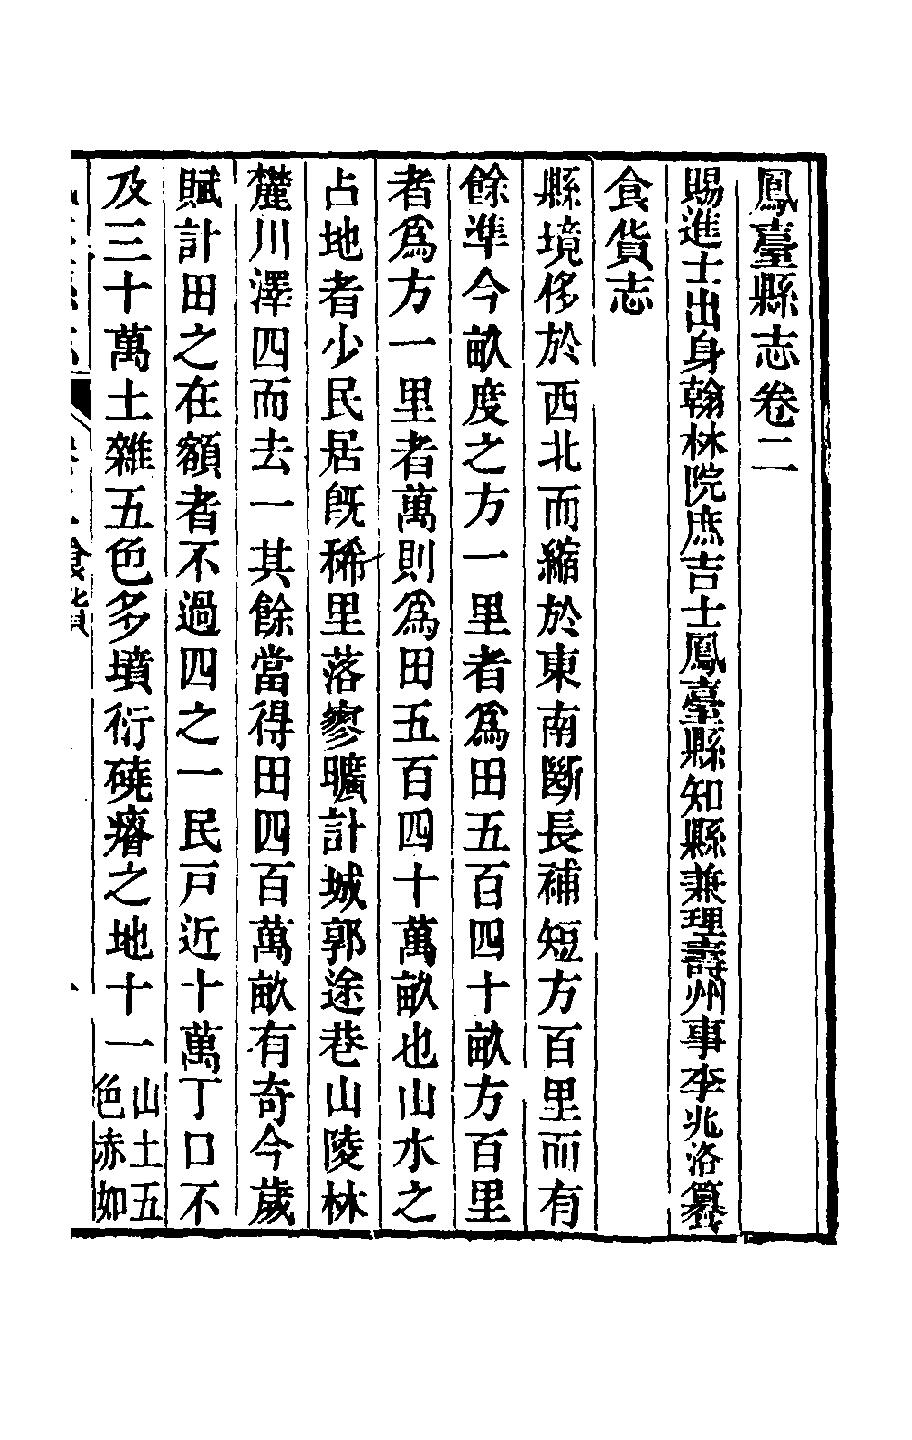 鳳臺縣志卷二
賜進士出身翰林院庶吉士鳳臺縣知縣兼理壽州事李兆洛纂
食貨志
縣境侈於西北而縮於東南斷長補短方百里而有
餘準今畝度之方一里者爲田五百四十畝方百里
者爲方一里者萬則爲田五百四十萬畝也山水之
占地者少民居旣稀里落寥曠計城郭途巷山陵林
麓川澤四而去一其餘當得田四百萬畝有奇今歲
賦計田之在額者不過四之一民戸近十萬丁口不
及三十萬土雜五色多墳衍磽瘠之地十一山土五
色赤如
食貨